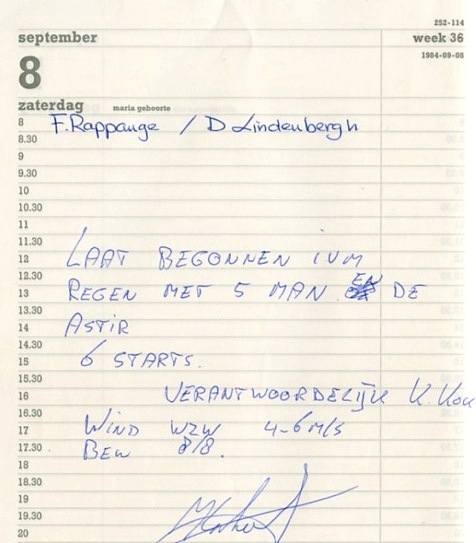 252-114
september week 36
1984-09-08
8
zaterdag maria geboorte
8 F. Rappange / D Lindenbergh
8.30
9
9.30
10
10.30
11
11.30
12 LAAT BEGONNEN IVM
12.30
13 REGEN MET 5 MAN EN DE
13.30
14 ASTIR
14.30
15 6 STARTS.
15.30
16 VERANTWOORDELIJK K. Kok
16.30
17 WIND WZW 4-6 M/S
17.30 BEW 8/8.
18
18.30
19
19.30
20